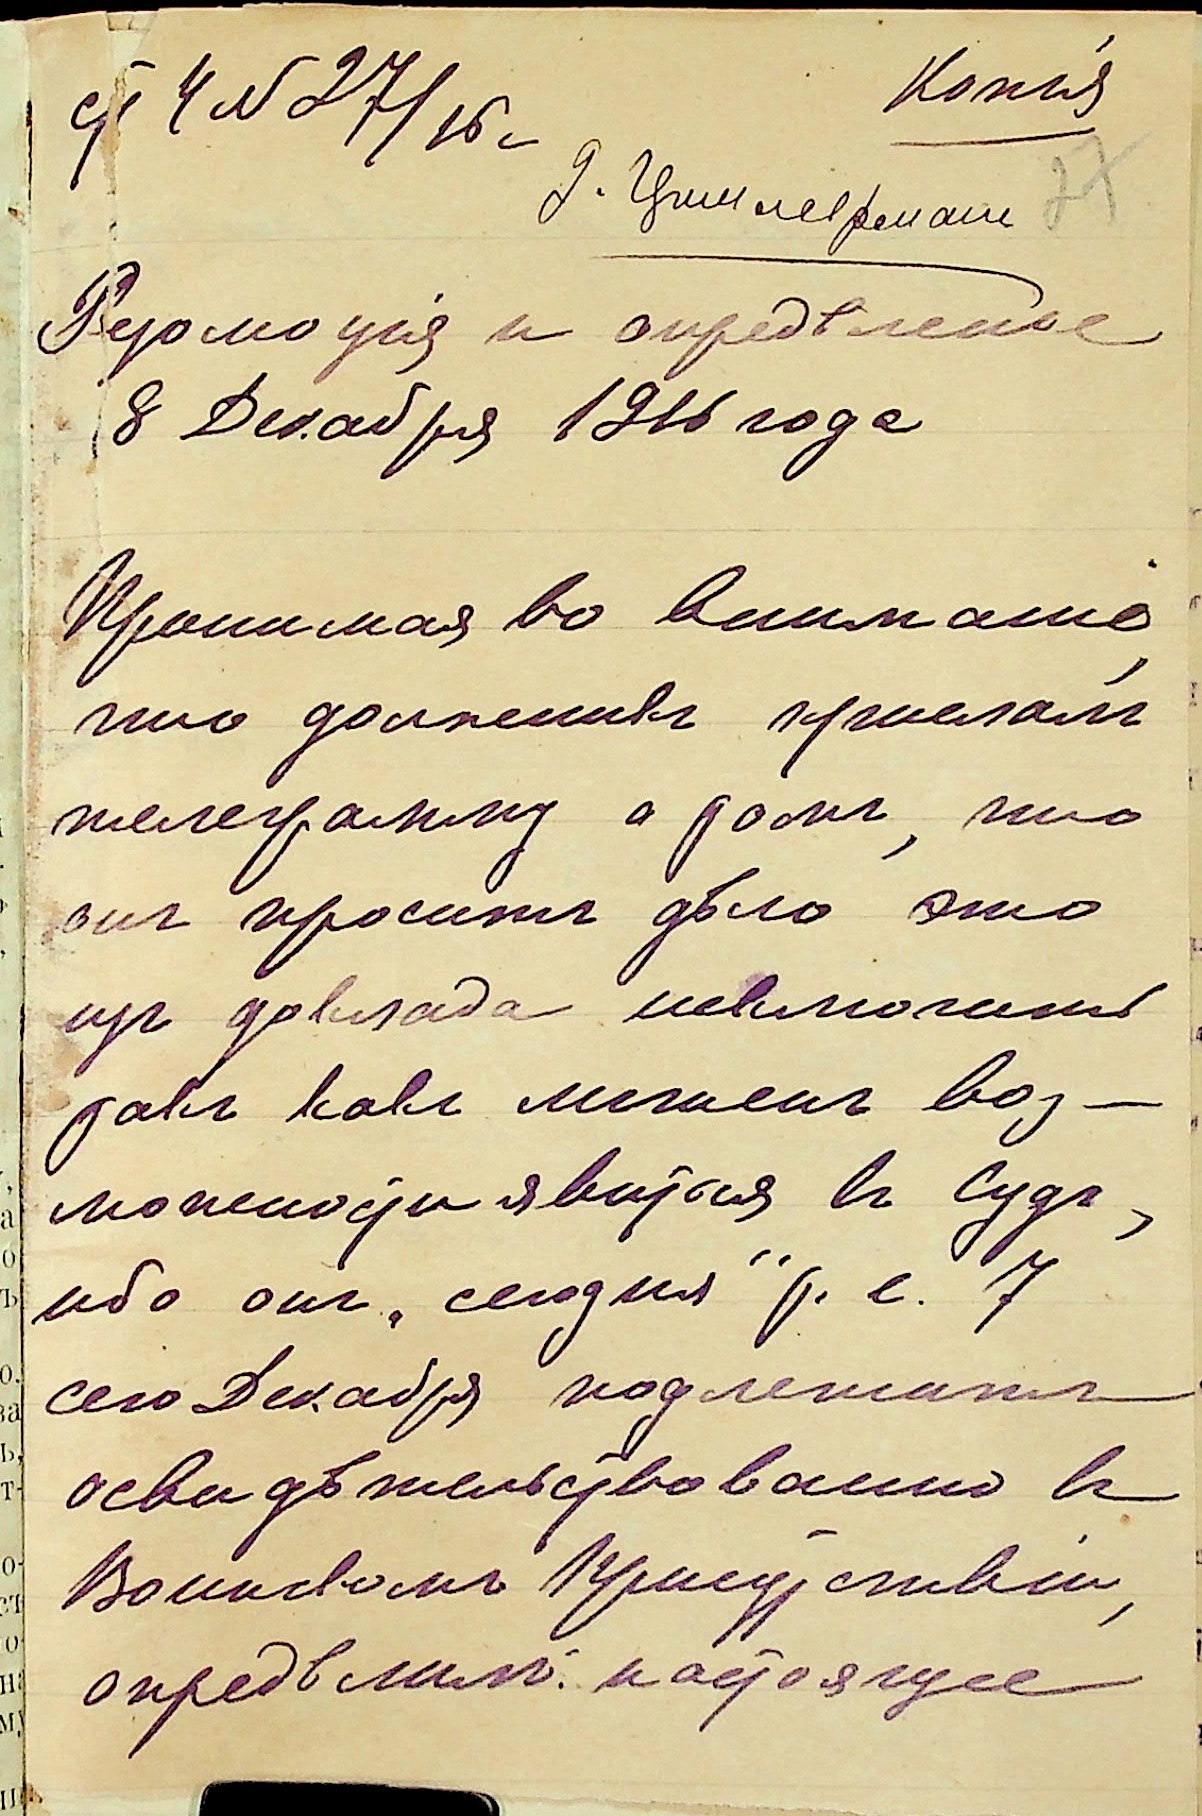 ст 4 № 27/16 г
Копія
27
г. Циммерманъ
Резолюція и опредѣленіе
8 Декабря 1916 года
Принимая во вниманіе,
что должникъ прислалъ
телеграмму о томъ, что
онъ проситъ дѣло это
изъ доклада исключить
такъ какъ лишенъ воз-
можности явиться въ Судъ,
ибо онъ „сегодня" т. е. 7
сего Декабря подлежитъ
освидѣтельствованію въ
Воинскомъ Присутствіи,
опредѣлилъ: настоящее